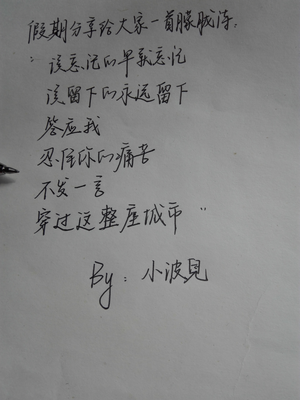 假期分享给大家一首朦胧诗:
"该忘记的早就忘记
该留下的永远留下
答应我
忍住你的痛苦
不发一言
穿过这整座城市"
By: 小波見